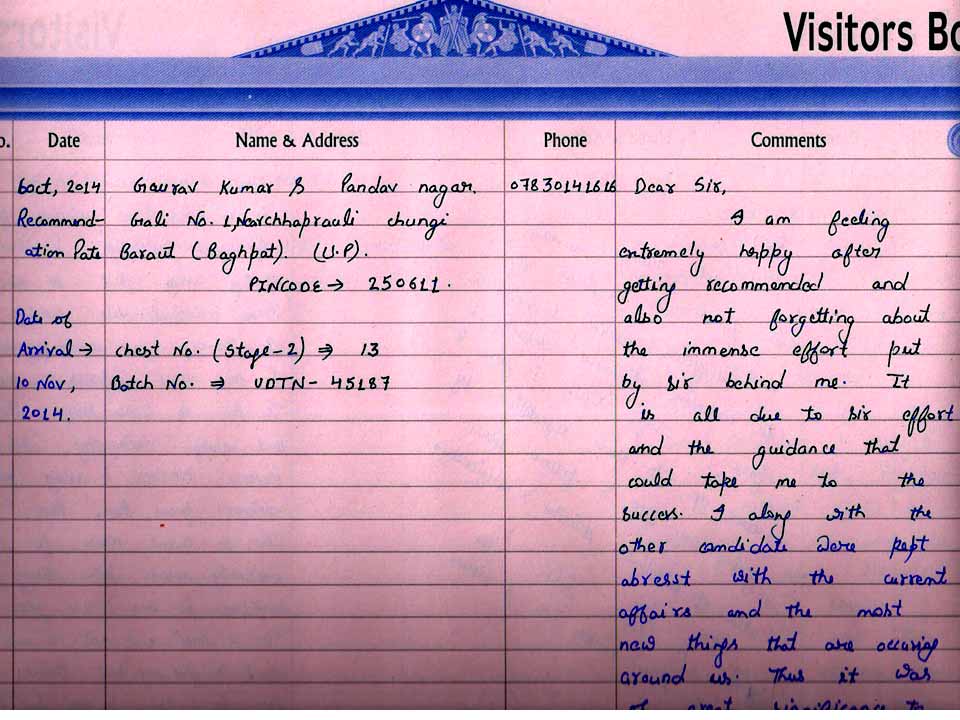 Visitors Bo
o. Date Name & Address Phone Comments
6oct, 2014 Gaurav Kumar S Pandav nagar. 07830141616 Dear Sir,
Recommend- Gali No. 1, Nearchhaprauli chungi I am feeling
ation Date Baraut (Baghpat). (U.P). extremely happy after
PINCODE → 250611. getting recommended and
Date of also not forgetting about
Arrival → chest No. (Stage-2) ⇒ 13 the immense effort put
10 Nov, Batch No. ⇒ UDTN- 45187 by sir behind me. It
2014. is all due to sir effort
and the guidance that
could take me to the
success. I along with the
other candidate were kept
abresst with the current
affairs and the most
new things that are occuring
around us. Thus it was
of great significance to